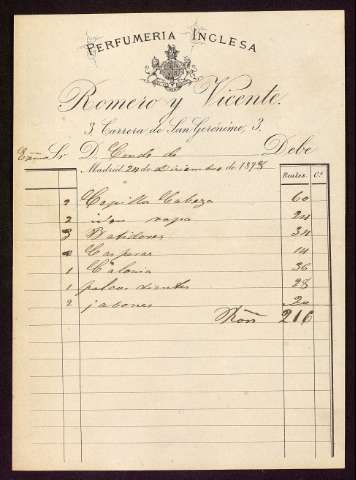 PERFUMERIA INGLESA
Romero y Vicente.
3 Carrera de San Gerónimo, 3.
Exmo Sr. D. Conde de Debe
Madrid 24 de Diciembre de 1878
Reales. Cs.
2 Cepillos Cabeza 60
2 idm ropa 24
3 Batidores 34
4 Casperos 14
1 Colonia 36
1 polvos dientes 28
2 jabones 20
Rvon 216